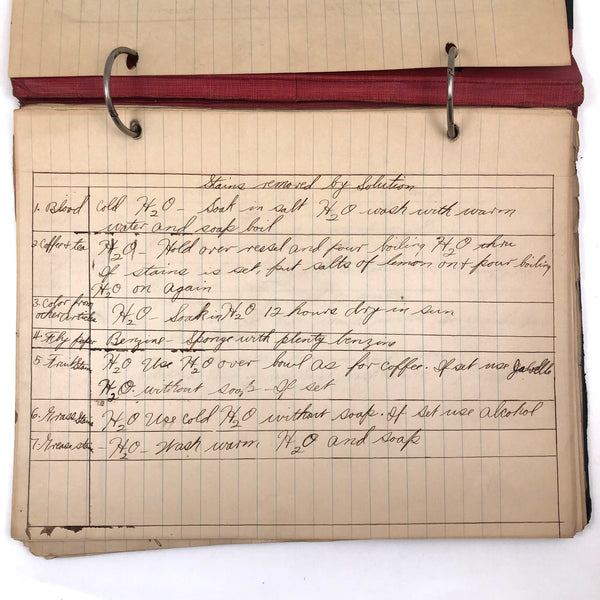 Stains removed by Solution
1. Blood Cold H2O - Soak in salt H2O wash with warm
water and soap boil
2. Coffee + tea H2O - Hold over vessel and pour boiling H2O thru
If stains is set, put salts of lemon on + pour boiling
H2O on again
3. Color from
other articles H2O - Soak in H2O 12 hours dry in sun
4. Fly paper Benzine - Sponge with plenty benzine
5. Fruit Stain H2O Use H2O over bowl as for coffee. If set use Javelle
H2O without soap - If set
6. Grass Stains H2O Use cold H2O without soap. If set use alcohol
7. Grease stain - H2O - Wash warm H2O and soap